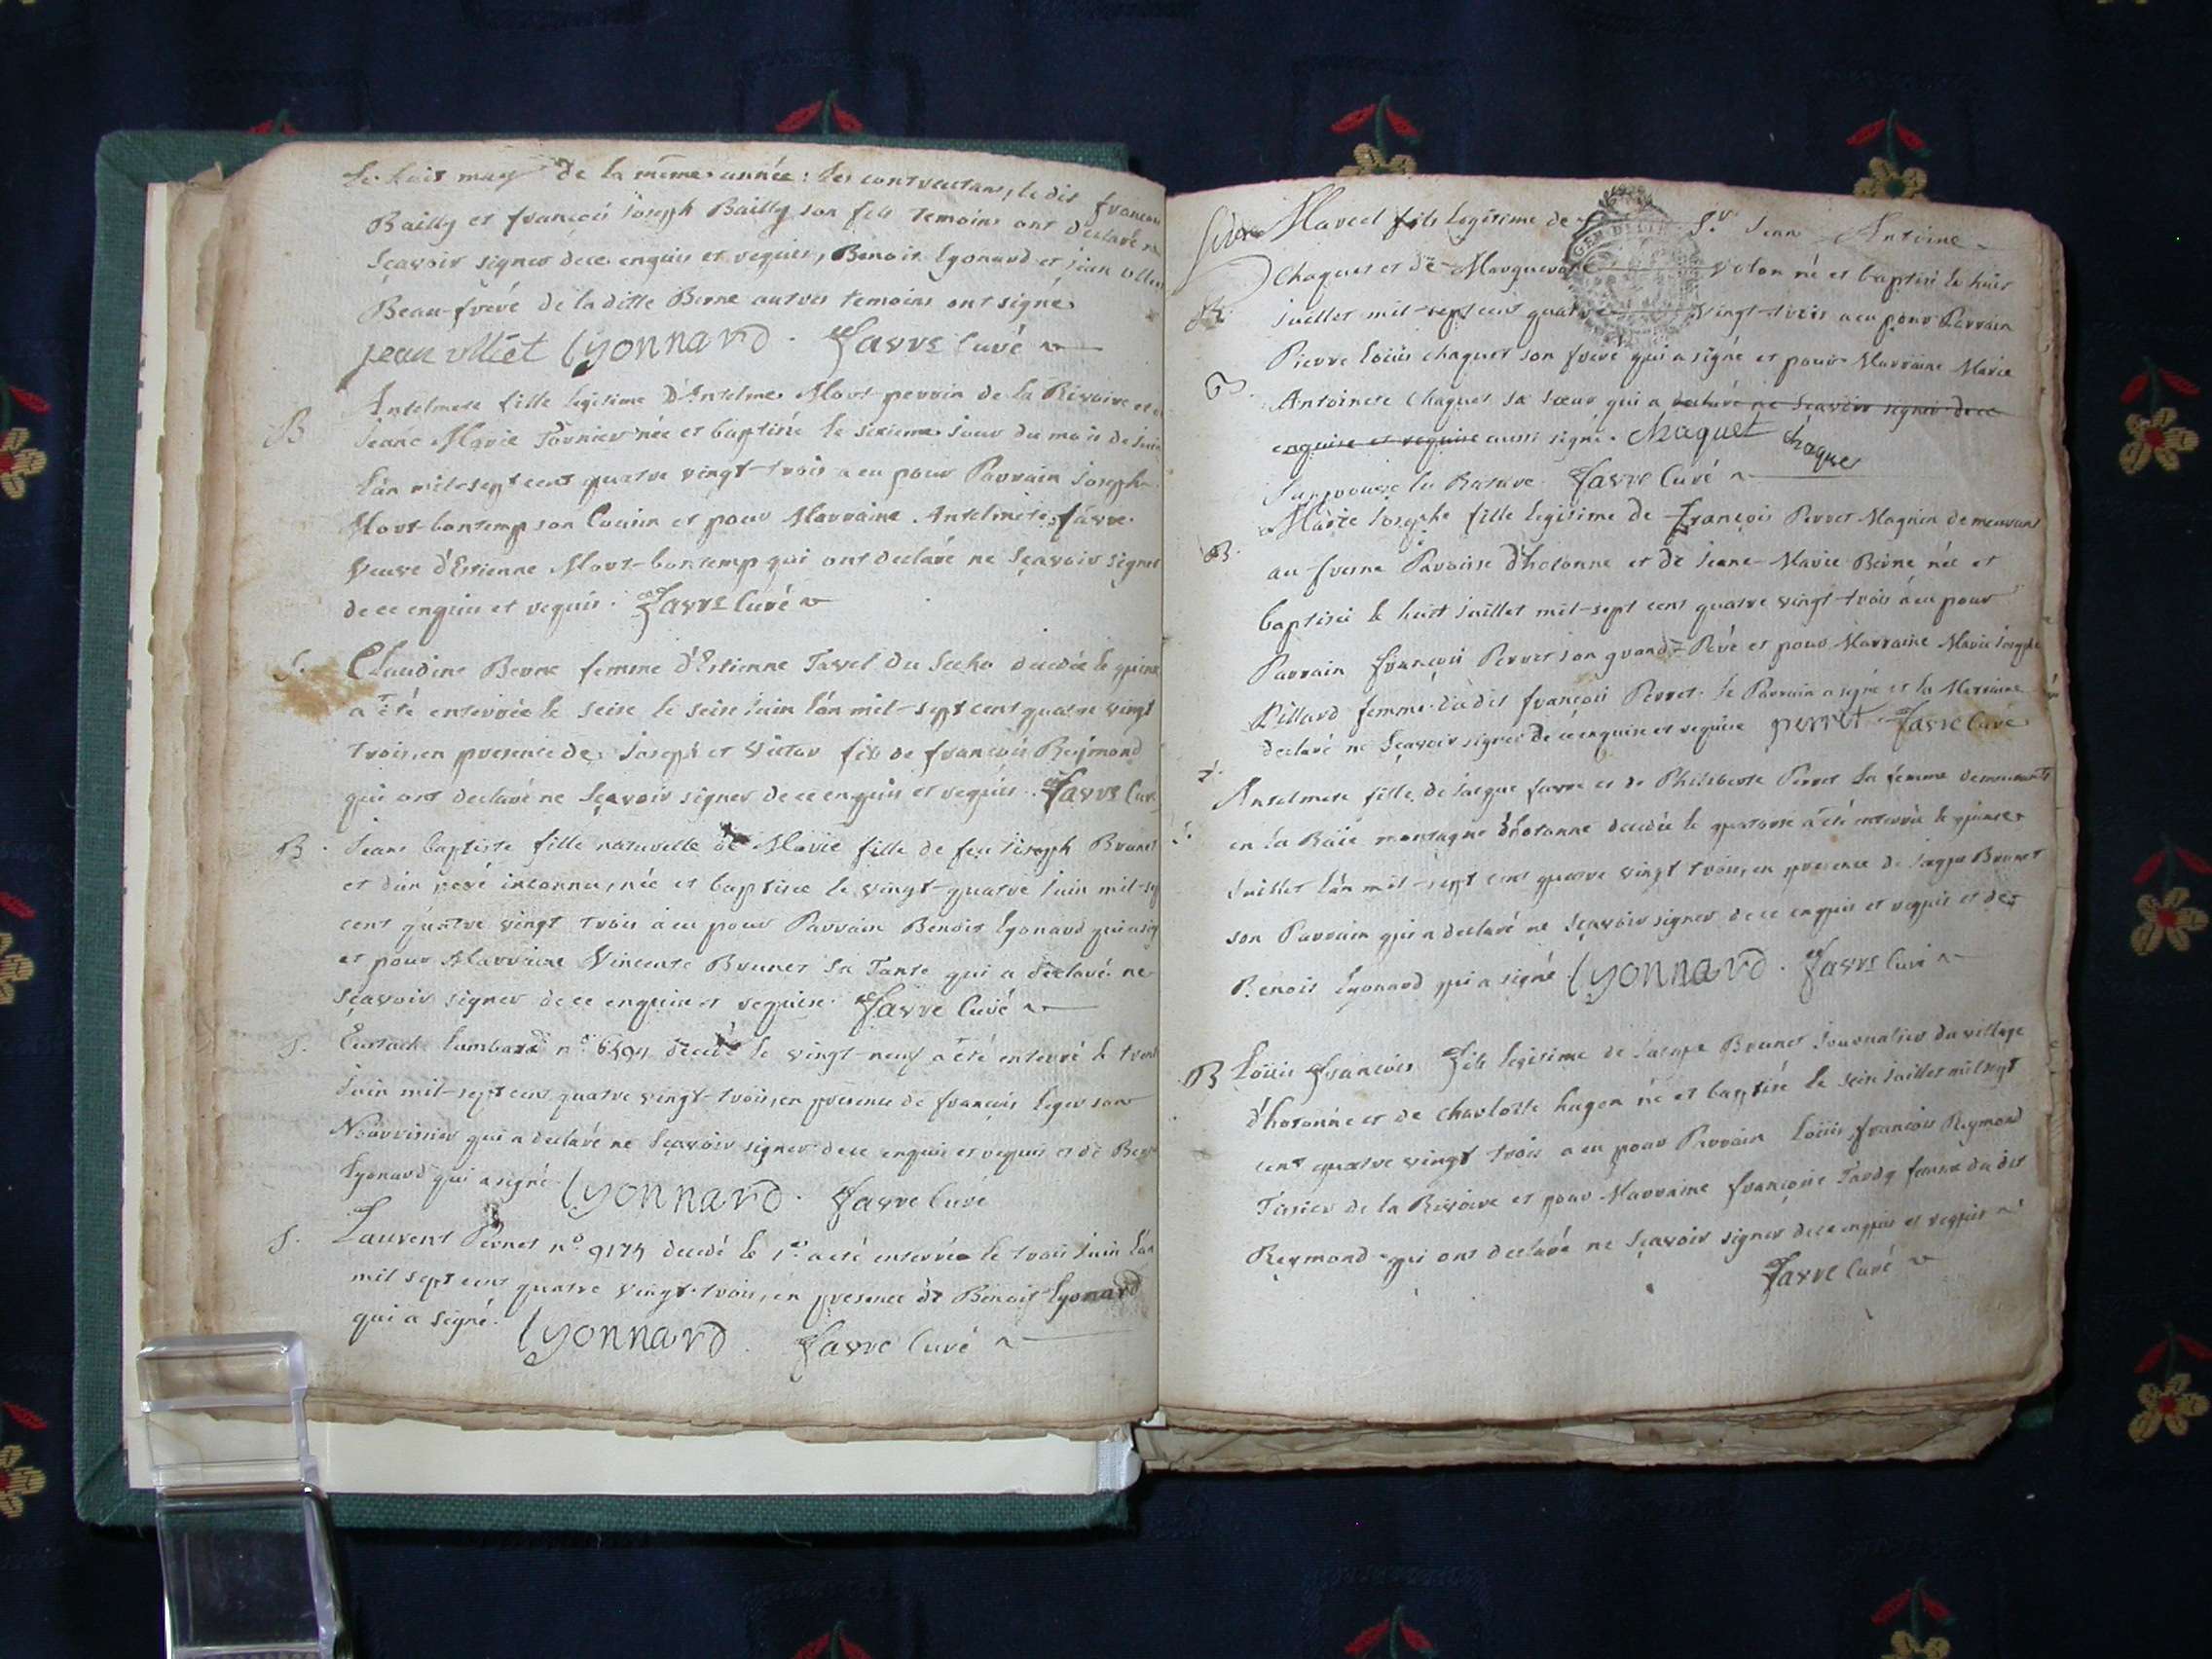 Le huit may de la même année: les contractans, le dit francois
Bailly et francois Joseph Bailly son fils temoins ont declaré ne
sçavoir signer de ce enquis et requis, Benoit Lyonard et jean
Beau-freré de la ditte Berne autres temoins ont signé
jean Lyonnard. favre Curé
B
Antelmete fille legitime D'Antelme Mort-perrin de la Rivoire et
Jeane Marie Fornier née et baptisée le sixieme jour du mois de Juin
L'an mil-sept cent quatre vingt-trois a eu pour Parrain Joseph
Mort-bontemp son Cousin et pour Marraine Antelmete favre
Veuve d'Estienne Mort-bontemp qui ont declaré ne sçavoir signer
de ce enquis et requis. favre Curé
S.
Claudine Berne femme d'Estienne Tavel du decedée le quinze
a été enterrée le seize le seize Juin l'an mil-sept cent quatre vingt
trois, en presence de Joseph et Victor fils de francois Reymond
qui ont declaré ne sçavoir signer de ce enquis et requis. favre Curé
B.
Jeane baptiste fille naturelle de Marie fille de feu Joseph Brunet
et d'un peré inconnu, née et baptisée le vingt-quatre Juin mil-sept
cent quatre vingt trois a eu pour Parrain Benoit Lyonard qui a signé
et pour Marraine Vincente Brunet sa Tante qui a declaré ne
sçavoir signer de ce enquise et requise. favre Curé
S.
Eustache Lombard n.º decedé le vingt-neuf a été enterré le trente
Juin mil-sept cent quatre vingt-trois, en presence de francois Leger son
Nourrissier qui a declaré ne sçavoir signer de ce enquis et requis et de Benoit
Lyonard qui a signé. Lyonnard. favre Curé
S.
Laurent Pernet n.º 9175 decedé le 1.er a eté enterrée le trois Juin l'an
mil sept cent quatre vingt-trois, en presence de Benoit Lyonard
qui a signé. Lyonnard. favre Curé
Marcel fils legitime de S.r Jean Antoine
Chaquet et de Marguerite né et baptisé le huit
B.
Juillet mil-sept cent quatre vingt-trois a eu pour Parrain
Pierre Loüis Chaquet son freré qui a signé et pour Marraine Marie
Antoinete Chaquet sa sœur qui a declaré ne sçavoir signer de ce
enquise et requise aussi signé. Chaquet chaquet
J'approuve la Rature. favre Curé
B.
Marie Josephe fille legitime de François Perret Magnin demeurant
au fresne Paroisse d'hotonne et de Jeane-Marie Berne née et
baptisée le huit Juillet mil-sept cent quatre vingt-trois a eu pour
Parrain françois Perret son grand-Peré et pour Marraine Marie Josephe
Billard femme du dit françois Perret. le Parrain a signé et la Marraine
declaré ne sçavoir signer de ce enquise et requise perret favre Curé
Antelmete fille de Jacque favre et de Philiberte Perret sa femme demeurants
en la montagne d'hotonne decedée le quatorze a été enterrée le quinze
Juillet l'an mil-sept cent quatre vingt trois, en presence de Jacque Brunet
son Parrain qui a declaré ne sçavoir signer de ce enquis et requis et de
Benoit Lyonard qui a signé. Lyonnard. favre Curé
B
Loüis François fils legitime de Jacque Brunet Journalier du village
d'hotonne et de Charlotte hugon né et baptisé le seize Juillet mil sept
cent quatre vingt trois a eu pour Parrain Loüis françois Reymond
Tissier de la Rivoire et pour Marraine françoise Tardy femme du dit
Reymond qui ont declaré ne sçavoir signer de ce enquis et requis
favre Curé